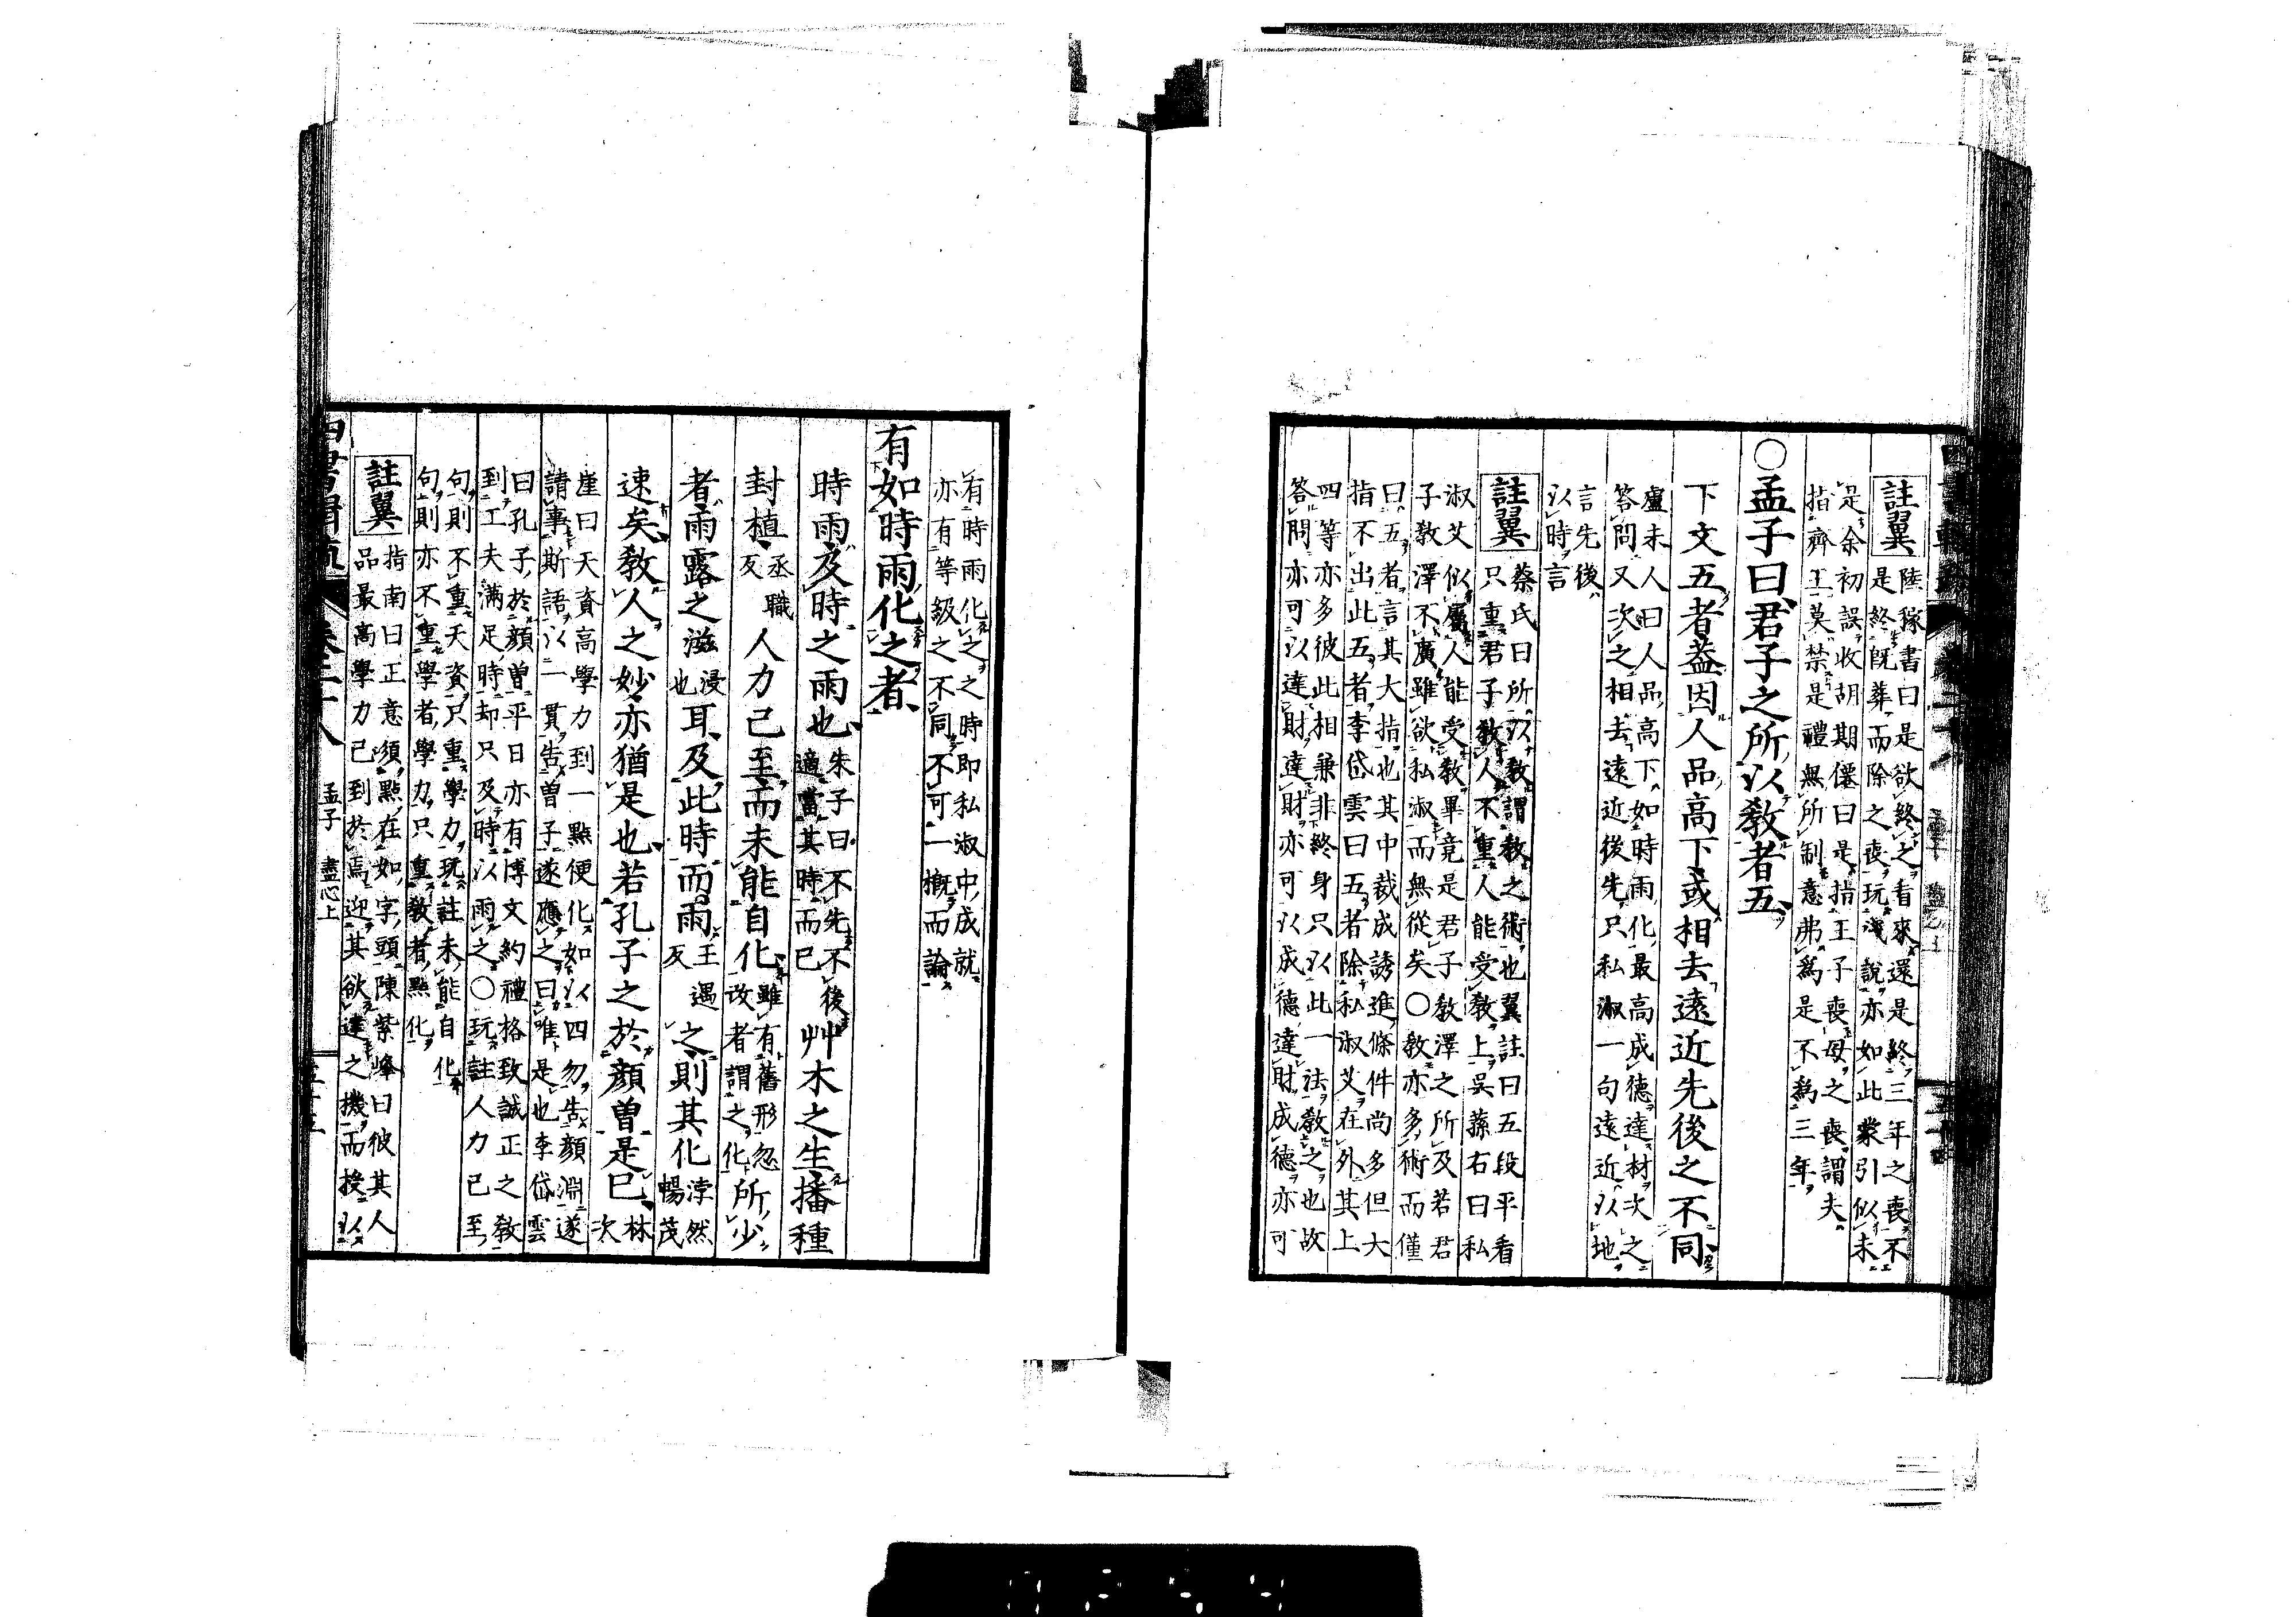 註翼
陸稼書曰是欲終之看來還是終三年之喪不
是終既葬而除之喪玩淺說亦如此蒙引似未
是余初誤收胡期僊曰是指王子喪母之喪謂夫
指齊王莫禁是禮無所制意弗爲是不爲三年
○孟子曰君子之所以敎者五
下文五者葢因人品高下或相去遠近先後之不同
盧未人曰人品高下如時雨化最高成德達材次之
答問又次之相去遠近後先只私淑一句遠近以地
言先後
以時言
註翼
蔡氏曰所以敎謂敎之術也翼註曰五段平看
只重君子敎人不重人能受敎上吳蓀右曰私
淑艾似屬人能受敎畢竟是君子敎澤之所及若君
子敎澤不廣雖欲私淑而無從矣○敎亦多術而僅
曰五者言其大指也其中裁成誘進條件尚多但大
指不出此五者李岱雲曰五者除私淑艾在外其上
四等亦多彼此相兼非終身只以此一法敎之也故
答問亦可以達財達財亦可以成德達財成德亦可
有時雨化之之時即私淑中成就
亦有等級之不同不可一槪而論
有如時雨化之者
時雨及時之雨也
朱子曰不先不後
適當其時而已
艸木之生播種
封植
丞職
反
人力已至而未能自化
雖有舊形忽
改者謂之化
所少
者雨露之滋
浸
也
耳及此時而雨
王遇
反
之則其化
浡然
暢茂
速矣敎人之妙亦猶是也若孔子之於顔曽是已
林
次
崖曰天資高學力到一點便化如以四勿告顔淵遂
請事斯語以一貫告曽子遂應之曰唯是也李岱雲
曰孔子於顔曽平日亦有博文約禮格致誠正之敎
到工夫滿足時却只及時以雨之○玩註人力已至
句則不重天資只重學力玩註未能自化
句則亦不重學者學力只重敎者點化
註翼
指南曰正意須點在如字頭陳紫峰曰彼其人
品最高學力已到於焉迎其欲達之機而投以
孟子 盡心上